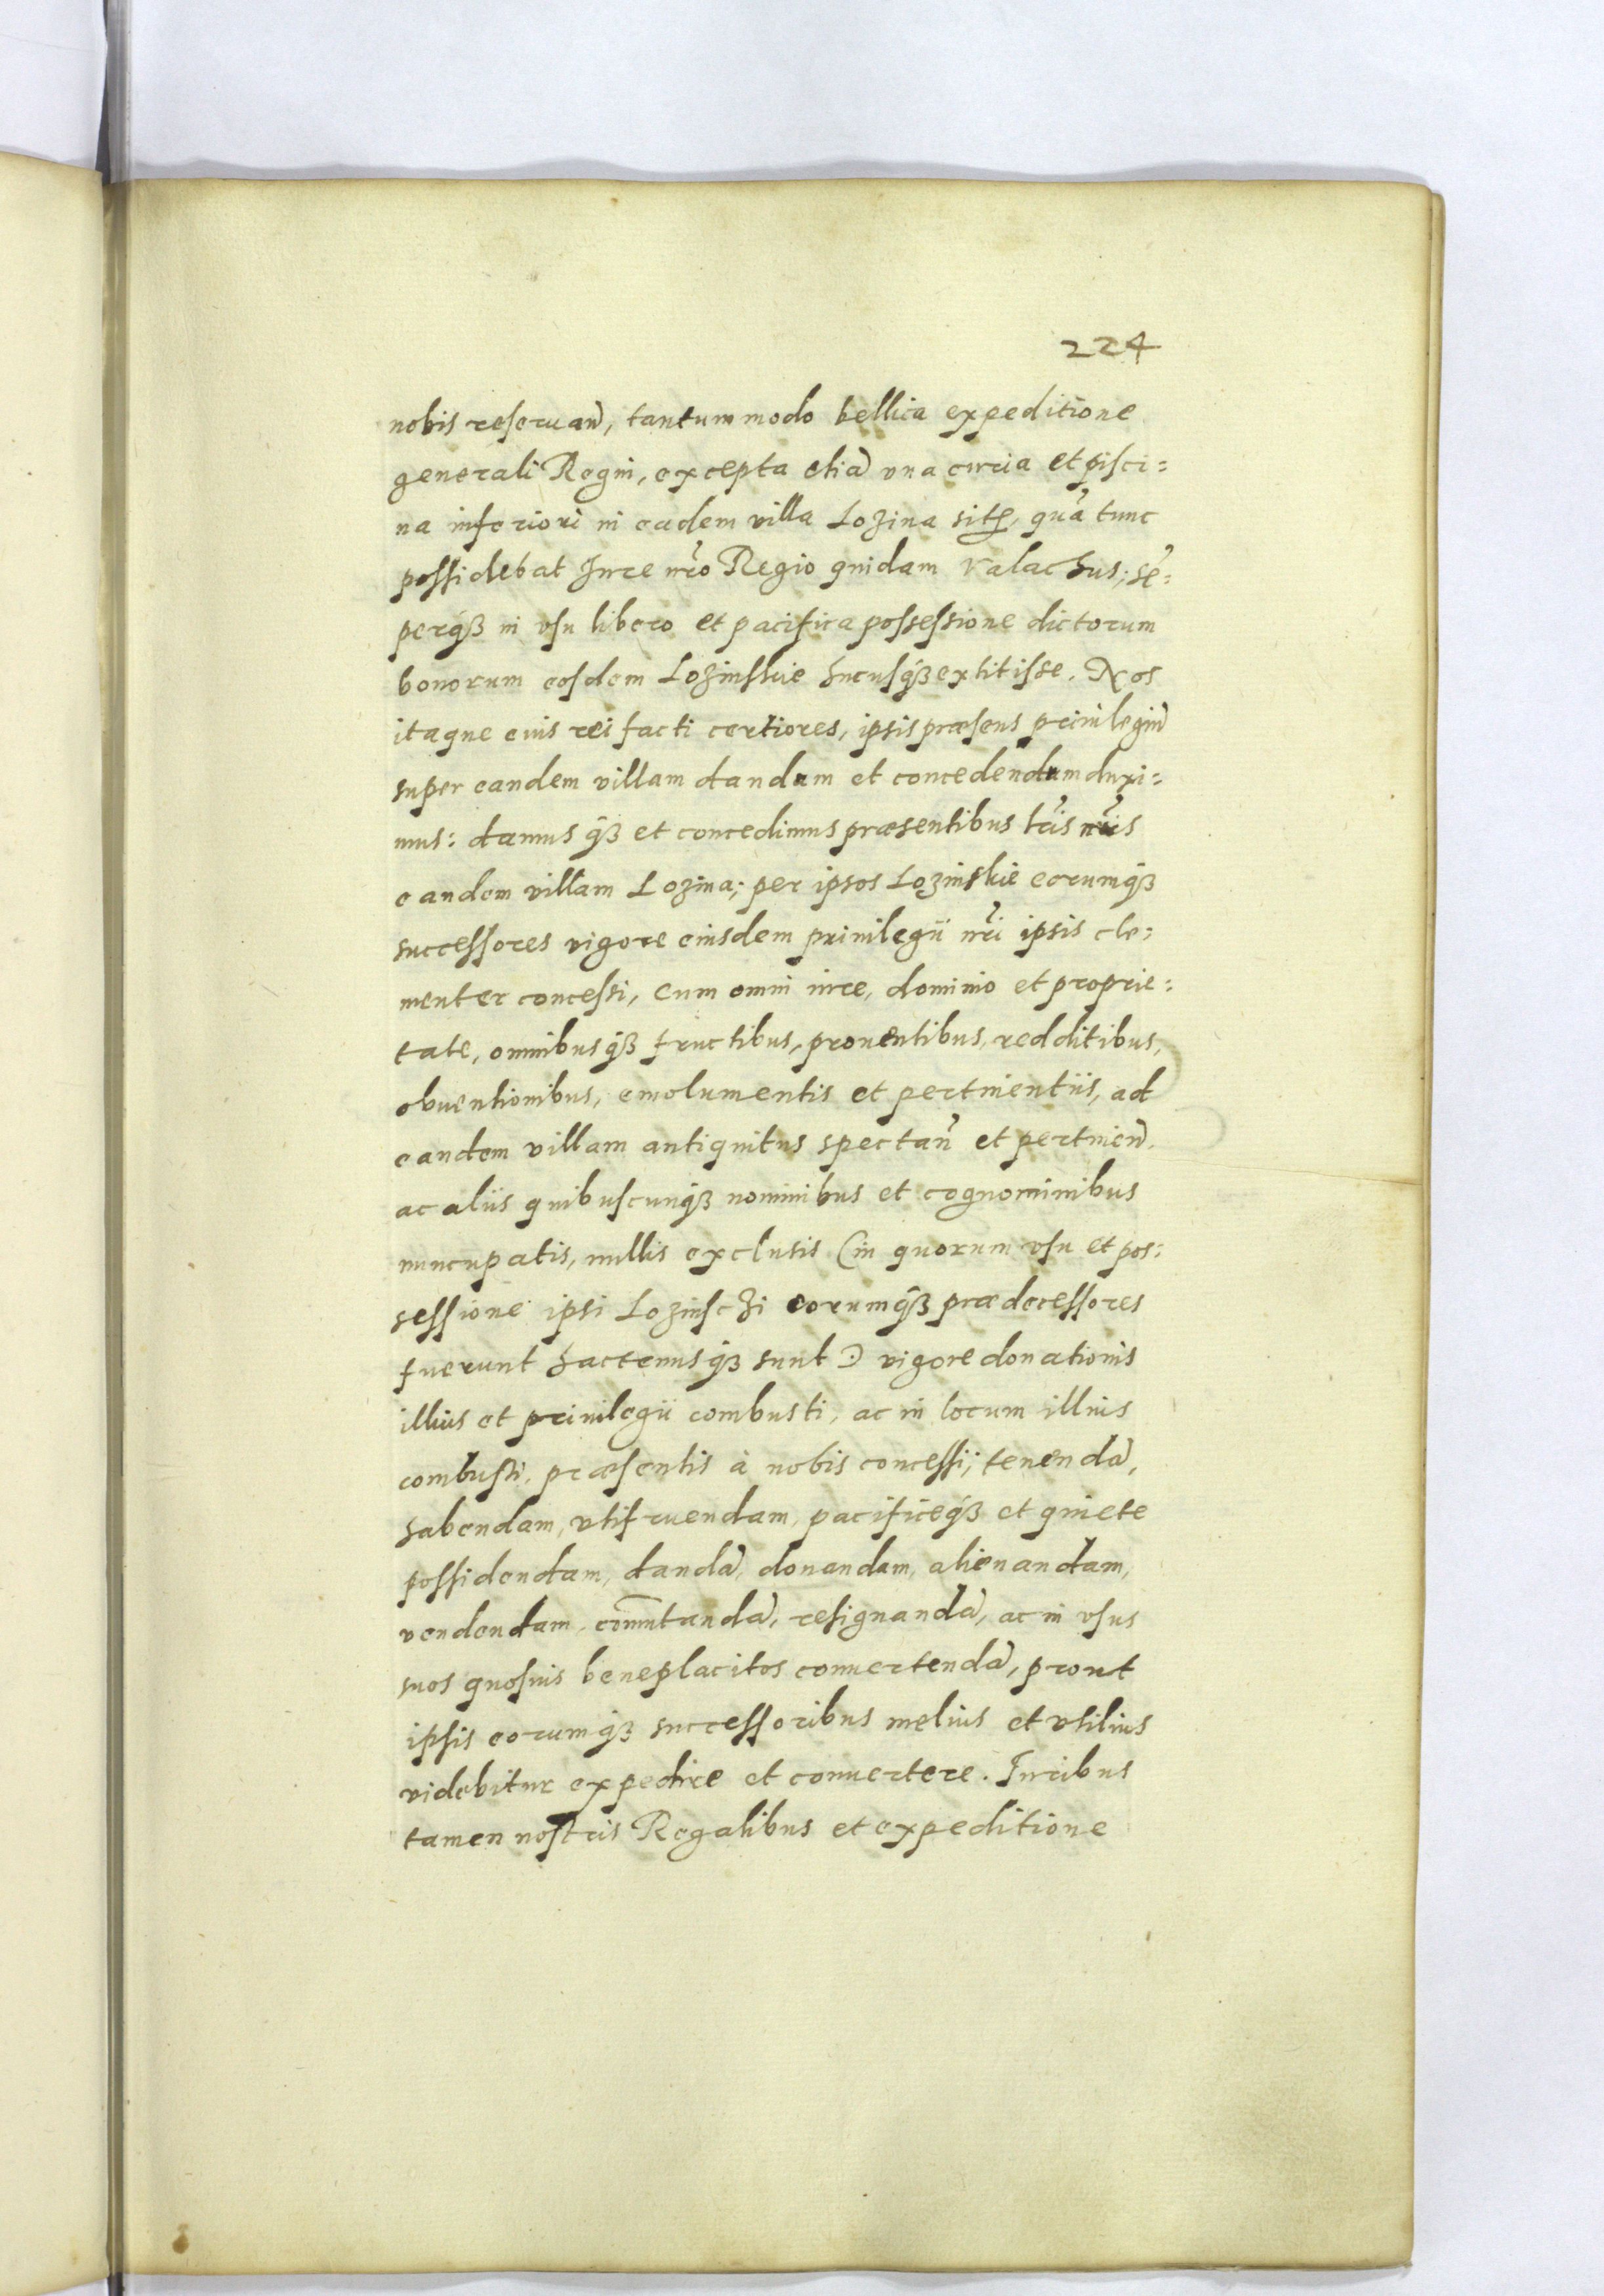 224
nobis reseruan̄, tantummodo bellica expeditione
generali Regni, excepta etiā vna curia et pisci=
na inferiori in eadem villa Lozina sitę, quā tunc
possidebat Iure nr̄o Regio quidam Valachus; sē=
perq́ꝫ in vsu libero et pacifica possessione dictorum
bonorum eosdem Lozinskie hucusq́ꝫ extitisse. Nos
itaque euis rei facti certiores, ipsis præsens priuilegiū
super eandem villam dandam et concedendum duxi=
mus: damus q́ꝫ et concedimus præsentibus lr̄is nr̄is
eandem villam Lozina; per ipsos Lozinskie eorumq́ꝫ
successores vigore eiusdem priuilegii nr̄i ipsis cle=
menter concessi, cum omni iure, dominio et proprie=
tate, omnibusq́ꝫ fructibus, prouentibus, redditibus,
obuentionibus, emolumentis et pertinentiis, ad
eandem villam antiquitus spectan̄ et pertinen̄.
ac aliis quibuscunq́ꝫ nominibus et cognominibus
nuncupatis, nullis exclusis (in quorum vsu et pos=
sessione ipsi Lozinschi eorumq́ꝫ prædecessores
fuerunt hactenusq́ꝫ sunt) vigore donationis
illius et priuilegii combusti, ac in locum illius
combusti, præsentis à nobis concessii; tenendā,
habendam, vtifruendam, pacificeq́ꝫ et quiete
possidendam, dandā, donandam, alienandam,
vendendam, com̄utandā, resignandā, ac in vsus
suos quosuis beneplacitos conuertendā, prout
ipsis eorumq́ꝫ successoribus melius et vtilius
videbitur expedire et conuertere. Iuribus
tamen nostris Regalibus et expeditione